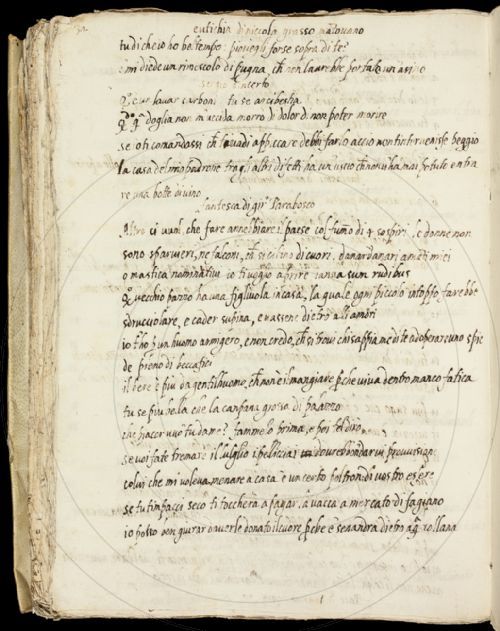 eutichia di nicola grasso mātovano
tu di che io ho bel tempo: piovegli forse sopra di te?
e mi diede un rimescolo di pugna, ch non l'avrebbe portato un asino
incerto
tu se arcibestia
doglia non m'accida morro di dolor di non poter morire
se o ti comandassi ch tu vadi appiccare debbi farlo accio non t'intervenisse peggio
la casa del mio padrone tra gli altri difetti ha un uscio ch non vi ha mai potuto entra
re una botte di vino
fantesca di gir. Parabosco
Altro ci vuol, che fare annebbiare il paese col fumo di 4 sospiri, le donne non
sono sparvieri, ne falconi, ch si di cuori, danar danari amici miei
o mastica nominativi io ti veggio aprire ianua sum rudibus
vecchio pazzo ha una figliuola in casa, la quale ogni piccolo intoppo farebbe
sdrucciolare, e cader supina, e vassene dietro alli amori
io tho p un huomo armigero, e non credo, ch si trovi chi sappia me di te adoperare uno spie
de pieno di beccafici
il bere è piu da gentilhuomo, ch non è il mangiare pche viva dentro manco fatica
tu se piu bella che la campana grossa di palazzo
che piacer vuo tu da me? fammelo prima, e poi tel diro
se voi fate tremare il luglio i pelliccia
colui che mi voleva menare a casa è un certo poltron di vostro essere
se tu t'impacci seco ti tocchera a pagar, la vacca a mercato di fagiano
io posso ben giurar d'averle donato il cuore pche e se n'andra dietro a